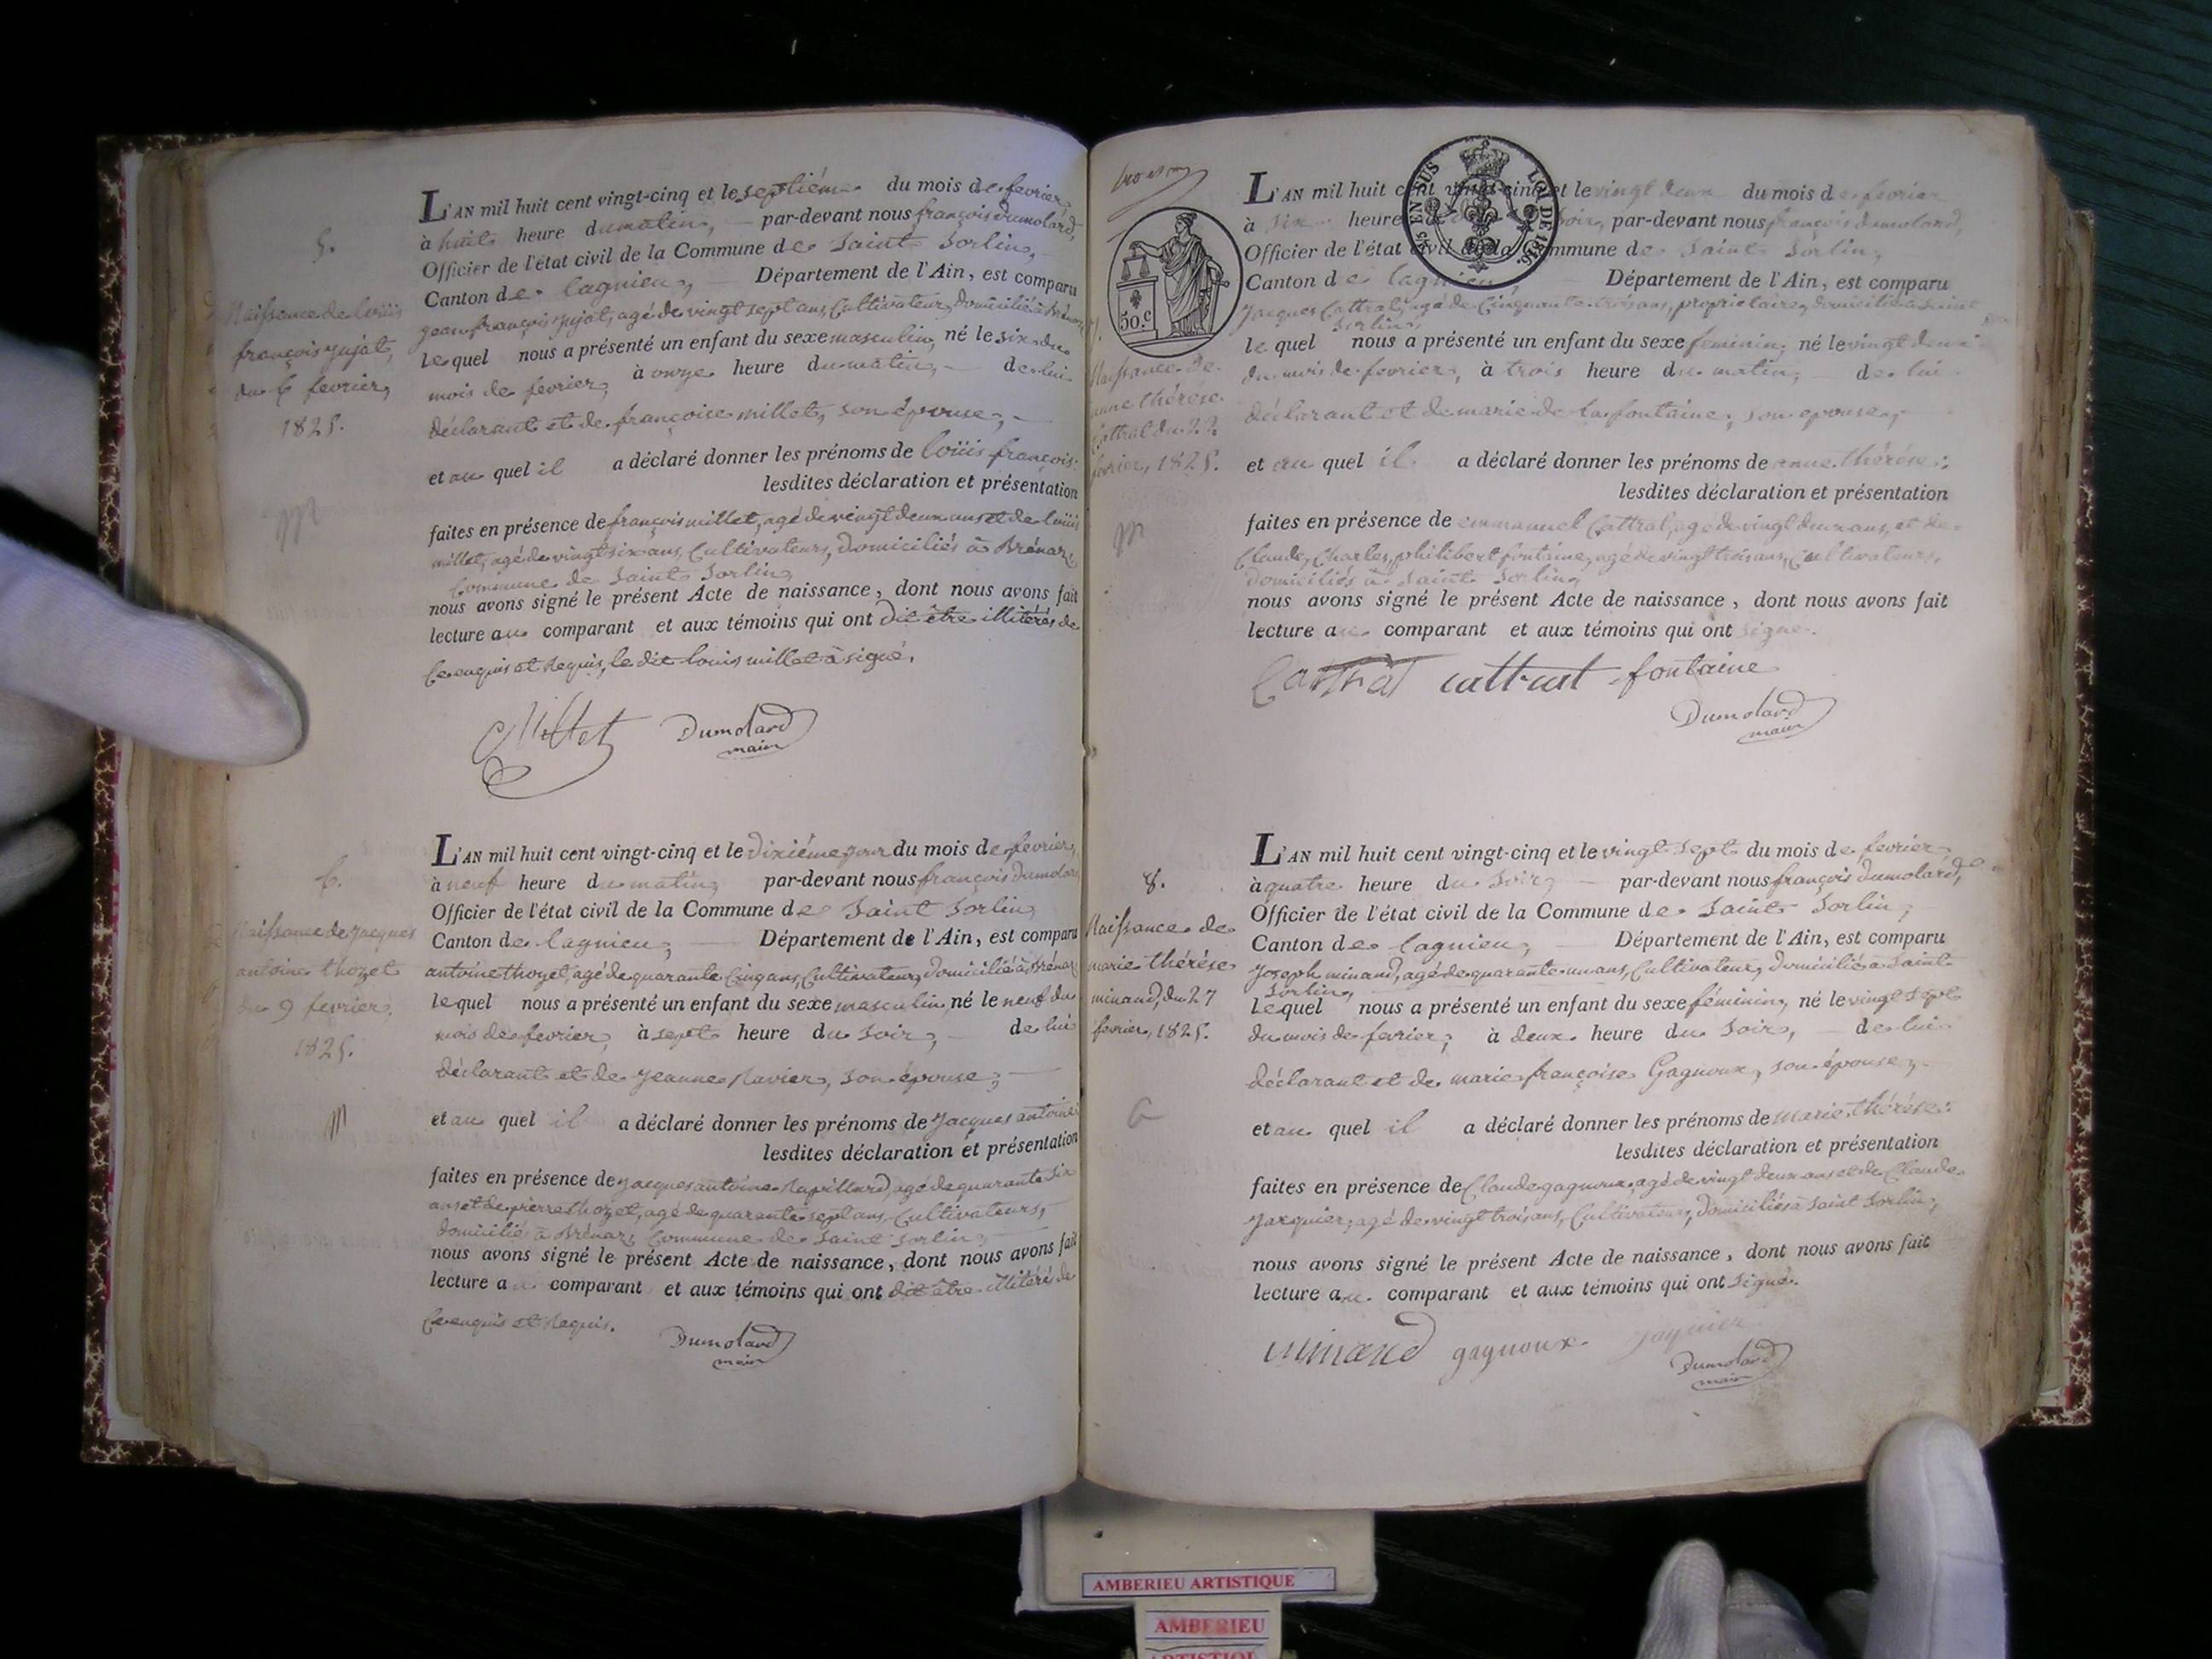 5.
Naissance de loüis
françois jujat,
du 6 fevrier,
1825.
M
L'AN mil huit cent vingt-cinq et le septiéme du mois de fevrier,
à huit heure du matin, par-devant nous françois dumolard,
Officier de l'état civil de la Commune de Saint Sorlin,
Canton de lagnieu, Département de l'Ain, est comparu
jean françois jujat, agé de vingt sept ans, Cultivateur, domicilié à Brénaz,
lequel nous a présenté un enfant du sexe masculin, né le six du
mois de fevrier, à onze heure du matin, de lui
déclarant et de françoise millet, son épouse,
et au quel il a déclaré donner les prénoms de loüis françois:
lesdites déclaration et présentation
faites en présence de françois millet, agé de vingt deux ans et de loüis
millet, agé de vingt six ans, Cultivateurs, domiciliés à Brénaz,
Commune de Saint Sorlin,
nous avons signé le présent Acte de naissance, dont nous avons fait
lecture au comparant et aux témoins qui ont dit être illitérés de
Ce enquis et Requis, le dit louis millet à signé.
Millet Dumolard
maire
6.
Naissance de jacques
antoine thozet
du 9 fevrier,
1825.
M
L'AN mil huit cent vingt-cinq et le dixiéme jour du mois de fevrier,
à neuf heure du matin, par-devant nous françois dumolard
Officier de l'état civil de la Commune de Saint Sorlin,
Canton de lagnieu, Département de l'Ain, est comparu
antoine thozet, agé de quarante Cinq ans, Cultivateur, domicilié à Brénaz,
lequel nous a présenté un enfant du sexe masculin, né le neuf du
mois de fevrier, à sept heure du soir, de lui
déclarant et de jeanne Ravier, son épouse,
et au quel il a déclaré donner les prénoms de jacques antoine:
lesdites déclaration et présentation
faites en présence de jacques antoine Rapillard, agé de quarante six
ans et de pierre thozet, agé de quarante sept ans, Cultivateurs,
domicilié à Brénaz, Commune de Saint Sorlin,
nous avons signé le présent Acte de naissance, dont nous avons fait
lecture au comparant et aux témoins qui ont dit être illitérés de
Ce enquis et Requis.
Dumolard
maire
50.c
25 EN SUS LOI DE 1816.
7.
Naissance de
anne thérèse
Cattral du 22
fevrier, 1825.
M
L'AN mil huit cent vingt-cinq et le vingt deux du mois de fevrier
à Six heure du soir, par-devant nous françois dumolard,
Officier de l'état civil de la Commune de Saint Sorlin,
Canton de lagnieu, Département de l'Ain, est comparu
Jacques Cattral, agé de Cinquante trois ans, propriétaire, domicilié à Saint
Sorlin,
le quel nous a présenté un enfant du sexe féminin, né le vingt deux
du mois de fevrier, à trois heure du matin, de lui
déclarant et de marie de la fontaine, son epouse,
et au quel il a déclaré donner les prénoms de anne thérèse:
lesdites déclaration et présentation
faites en présence de emmanuel Cattral, agé de vingt deux ans, et de
Claude, Charles, philibert fontaine, agé de vingt trois ans, Cultivateurs,
domiciliés à Saint Sorlin,
nous avons signé le présent Acte de naissance, dont nous avons fait
lecture au comparant et aux témoins qui ont signé.
Cattrat cattrat fontaine
Dumolard
maire
8.
Naissance de
marie thérèse
minand, du 27
fevrier, 1825.
L'AN mil huit cent vingt-cinq et le vingt Sept du mois de fevrier
à quatre heure du Soir, par-devant nous françois dumolard,
Officier de l'état civil de la Commune de Saint Sorlin,
Canton de lagnieu, Département de l'Ain, est comparu
Joseph minand, agé de quarante un ans, Cultivateur, domicilié à Saint
Sorlin,
Lequel nous a présenté un enfant du sexe féminin, né le vingt sept
du mois de fevrier, à deux heure du Soir, de lui
déclarant et de marie françoise Gagnoux, son épouse,
et au quel il a déclaré donner les prénoms de marie thérèse:
lesdites déclaration et présentation
faites en présence de Claude gagnoux, agé de vingt deux ans et de Claude
Jacquier, agé de vingt trois ans, Cultivateurs, domiciliés à Saint Sorlin,
nous avons signé le présent Acte de naissance, dont nous avons fait
lecture au comparant et aux témoins qui ont signé.
minand gagnoux Jaquier
Dumolard
maire
AMBERIEU ARTISTIQUE
AMBERIEU
ARTISTIQUE